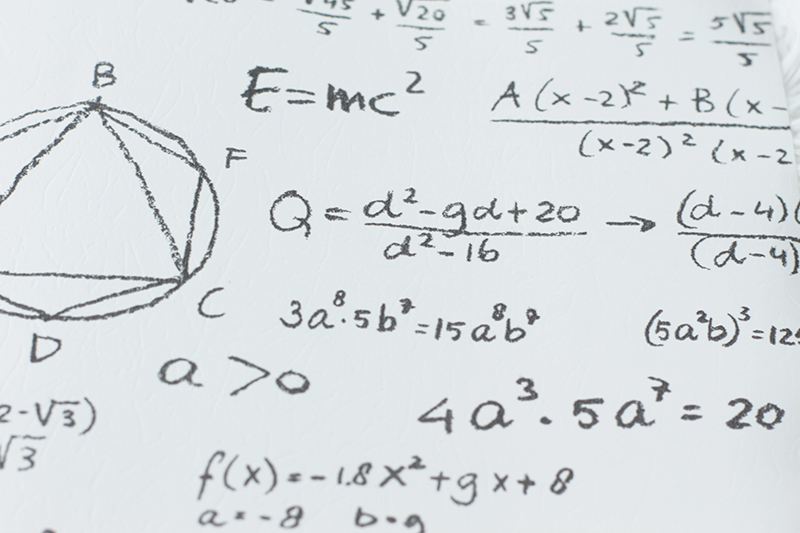 √45/5 + √20/5 = 3√5/5 + 2√5/5 = 5√5/5
B
E=mc²
A(x-2)² + B(x-
(x-2)² (x-2
F
Q = d²-9d+20/d²-16 → (d-4)(/(d-4)
C
3a⁸·5b⁷=15a⁸b⁷
(5a²b)³=125
D
a>0
4a³·5a⁷=20
2-√3)
√3
f(x)=-1.8x²+9x+8
a=-8 b=9